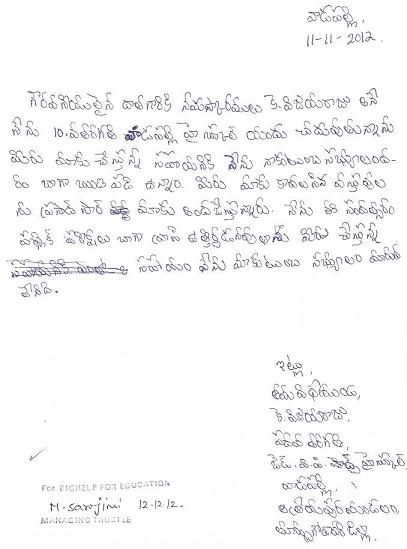 వాడపల్లి,
11-11-2012.
గౌరవనీయులైన దాతగారికి నమస్కారములు కె. విజయరాజు అనే
నేను 10వ తరగతి వాడపల్లి హై స్కూల్ యందు చదువుతున్నాను
మీరు మాకు చేస్తున్న సహాయానికి నేను నాకుటుంబ సభ్యులంద-
రం బాగా ఋణపడి ఉన్నాం. మీరు మాకు కావలసిన వస్తువుల
ను మాకు అందజేస్తున్నారు. నేను ఈ సంవత్సరం
పబ్లిక్ పరీక్షలు బాగా వ్రాసి మీరు చేస్తున్న
సహాయం నేను మాకుటుంబ సభ్యులం మరువ
లేనిది.
ఇట్లు,
తమ విధేయుడు,
కె. విజయరాజు,
పదవ తరగతి,
జెడ్. పి. పి. హైస్కూల్,
వాడపల్లి,
ఆత్రేయపురం మండలం,
తూర్పుగోదావరి జిల్లా.
For BIGHELP FOR EDUCATION
M. Sarojini 12-12-12.
MANAGING TRUSTEE